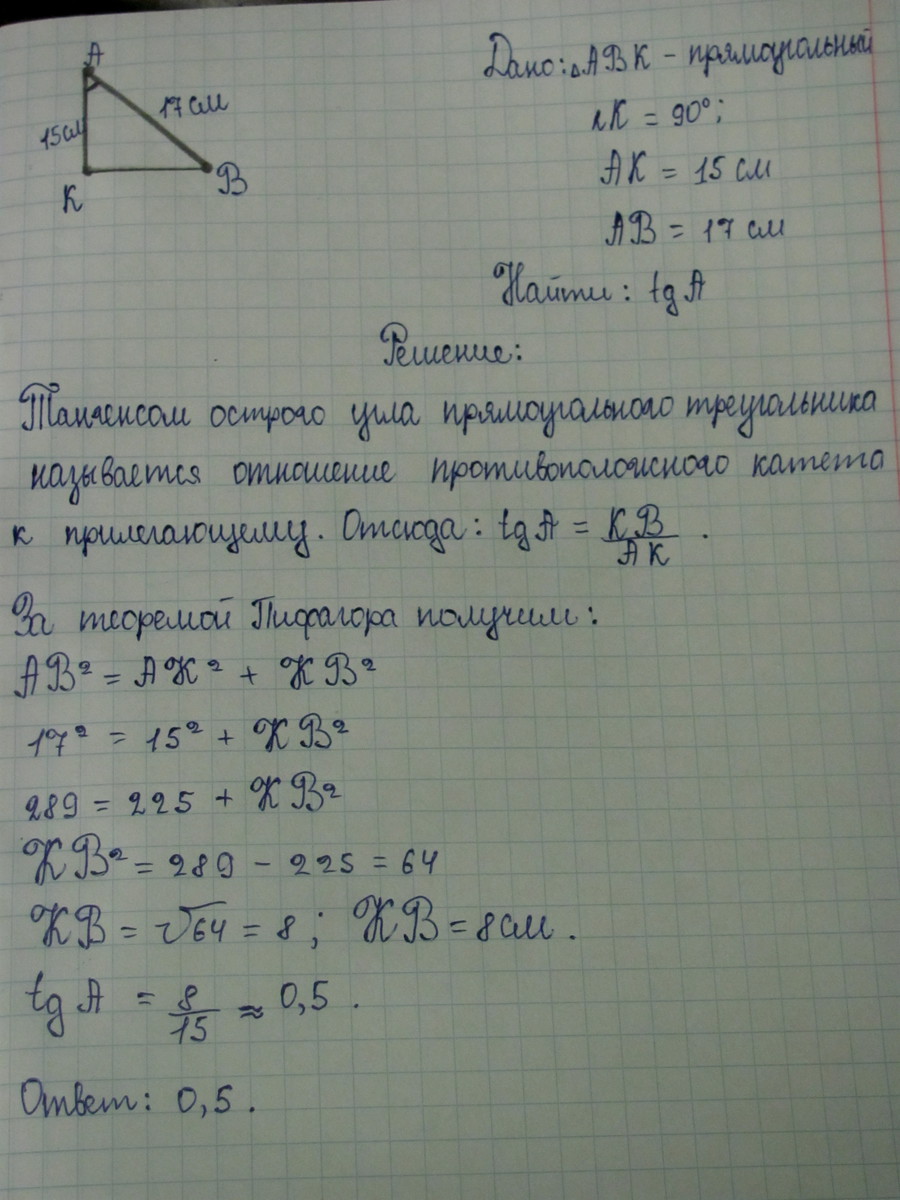 A
17 см
15 см
K
B
Дано: △ABK - прямоугольный
∠K = 90°;
AK = 15 см
AB = 17 см
Найти: tg A
Решение:
Тангенсом острого угла прямоугольного треугольника
называется отношение противоположного катета
к прилегающему. Отсюда: tg A = KB/AK.
За теоремой Пифагора получим:
AB² = AK² + KB²
17² = 15² + KB²
289 = 225 + KB²
KB² = 289 - 225 = 64
KB = √64 = 8; KB = 8 см.
tg A = 8/15 ≈ 0,5.
Ответ: 0,5.